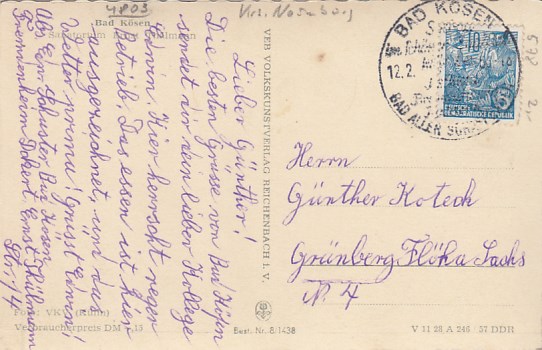 4803
Krs. Naumburg
Bad Kösen
Sanatorium Ernst Thälmann
Lieber Günther!
Die besten Grüsse von Bad Kösen
sendet dir dein lieber Kollege
Erwin. Hier herrscht reger
Betrieb. Das essen ist hier
ausgezeichnet, und das
Wetter prima! Grüsst Erwin!
Abs. Erw. Schuster Bad Kösen
Str. 14
Foto: VKV (Kühn)
Verbraucherpreis DM 0,15
VEB VOLKSKUNSTVERLAG REICHENBACH I. V.
Best. Nr. 8/1438
BAD KÖSEN
12.2.
DEUTSCHE
DEMOKRATISCHE REPUBLIK
10
Herrn
Günther Koteck
Grünberg Flöha Sachs
N. 4
V 11 28 A 246 / 57 DDR